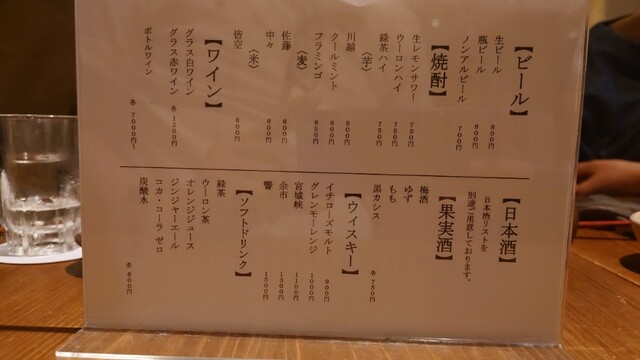 【ビール】
生ビール 800円
瓶ビール 800円
ノンアルビール 700円
【焼酎】
生レモンサワー 750円
ウーロンハイ 750円
緑茶ハイ 750円
〈芋〉
川越 800円
クールミント 800円
フラミンゴ 850円
〈麦〉
佐藤 800円
中々 800円
〈米〉
皆空 800円
【ワイン】
グラス白ワイン
グラス赤ワイン 各1200円
ボトルワイン 各7000円〜
【日本酒】
日本酒リストを
別途ご用意しております。
【果実酒】
梅酒
ゆず
もも
黒カシス 各750円
【ウイスキー】
イチローズモルト 900円
グレンモーレンジ 1000円
宮城峡 1100円
余市 1300円
響 1500円
【ソフトドリンク】
緑茶
ウーロン茶
オレンジジュース
ジンジャーエール
コカ・コーラ ゼロ
炭酸水 各600円